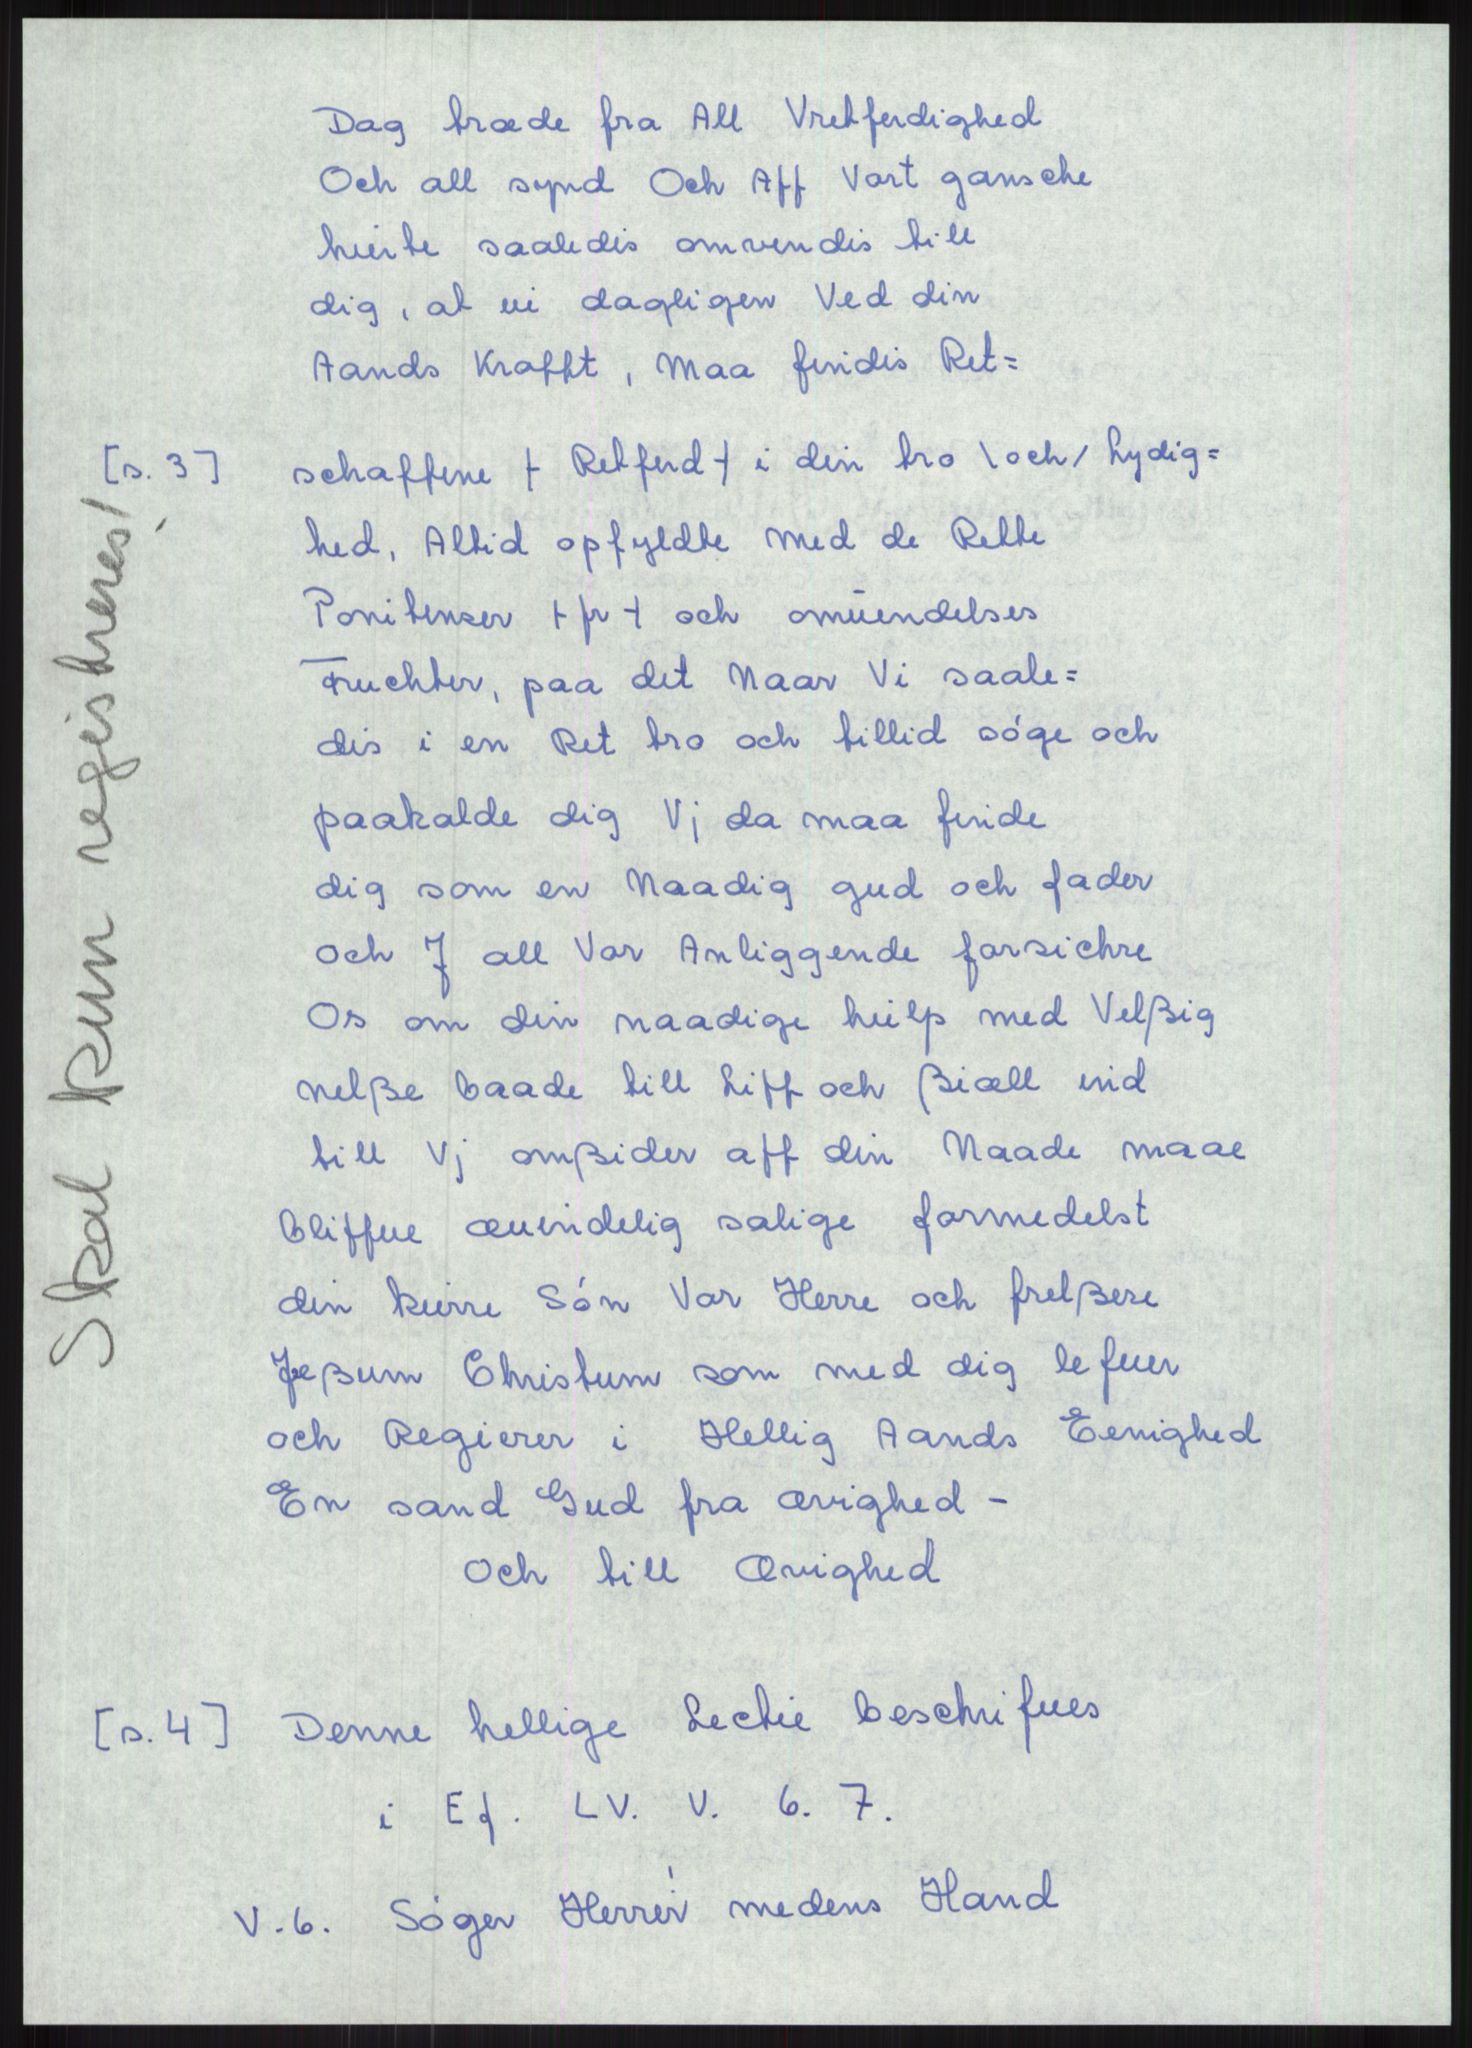 Dag træde fra All Vretferdighed
Och all synd Och Aff Vort gansche
hierte saaledis omvendis till
dig, at vi dagligen Ved din
Aands Krafft, Maa findis Ret=
[s. 3] schaffene + Retferd + i din tro \och/ Lydig=
hed, Altid opfyldte med de Rette
Ponitenser + fr + och omuendelses
Fruchter, paa det Naar Vi saale=
dis i en Ret tro och tillid søge och
paakalde dig Vj da maa finde
dig som en Naadig gud och fader
och J all Vor Anliggende forsichre
Os om din naadige hielp med Velßig
nelße baade till Liff och ßiæll ind
till Vj omßider aff din Naade maae
bliffue æuindelig salige formedelst
din kierre Søn Vor Herre och frelßere
Jeßum Christum som med dig lefuer
och Regierer i Hellig Aands Eenighed
En sand Gud fra ævighed -
och till Ævighed
[s. 4] Denne hellige Lectie beschrifues
i Ef. LV. V. 6. 7.
V. 6. Søger Herren medens Hand
Skal kun registreres!